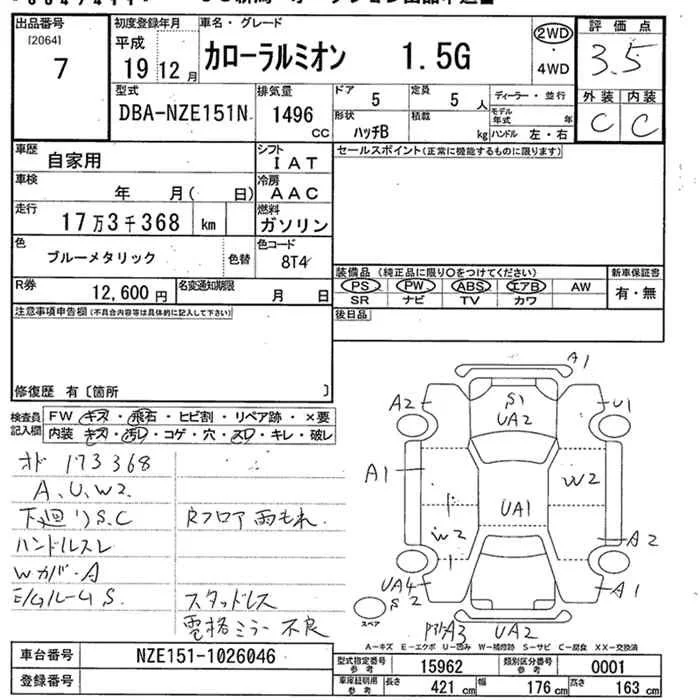 出品番号 初度登録年月 車名・グレード 評価点
[2064] 7
平成 19 12月 カローラルミオン 1.5G 2WD 4WD 3.5
型式 DBA-NZE151N 排気量 1496 CC
ドア 5 定員 5 人 ディーラー・並行 外装 内装
形状 ハッチB 積載 kg モデル年式 年 ハンドル 左・右 C C
車歴 自家用 シフト IAT セールスポイント(正常に機能するものに限ります)
車検 年 月( 日) 冷房 AAC
走行 17万3千368 km 燃料 ガソリン
色 ブルーメタリック 色替 色コード 8T4
装備品(純正品に限り○をつけてください) 新車保証書
R券 12,600円 名変通知期限 月 日
PS PW ABS エアB AW 有・無
SR ナビ TV カワ
注意事項申告欄(不具合内容等は具体的に記入して下さい) 後日品
修復歴 有〔箇所 〕
検査員記入欄 FW キズ・飛石・ヒビ割・リペア跡・×要
内装 キズ・汚レ・コゲ・穴・スレ・キレ・破レ
オド 173368
A、U、W2
下廻りS.C Rフロア雨もれ.
ハンドルスレ
Wカバ-A
スタッドレス
電格ミラー不良
A1
A2 S1 U1
UA2
A1 W2
UA1
W2 A2
UA4 A1
S2
スペア A3 UA2
A-キズ E-エクボ U-凹み W-補修跡 S-サビ C-腐食 XX-交換済
車台番号 NZE151-1026046 型式指定番号 参考 15962 類別区分番号 参考 0001
登録番号 車庫証明用 参考 長さ 421 cm 幅 176 cm 高さ 163 cm